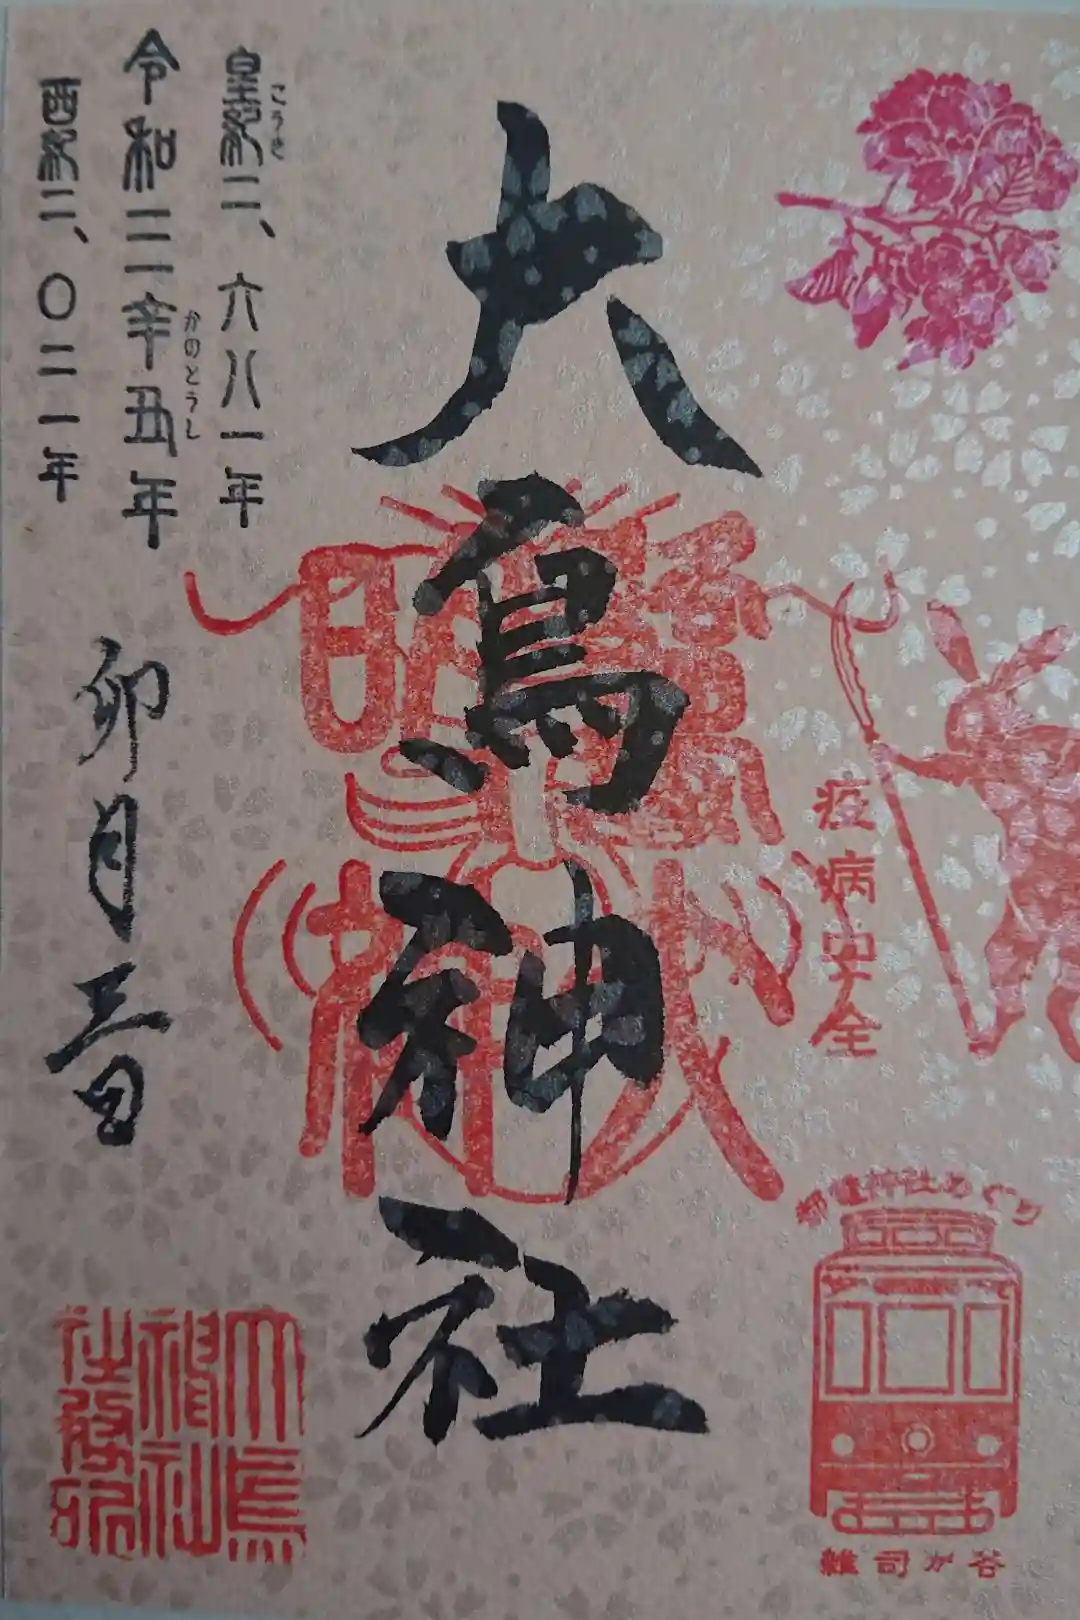 疫病安全
大鳥神社
皇紀二、六八一年
こうき
令和三辛丑年
かのとうし
西紀二、〇二一年
卯月三日
都電神社めぐり
雑司が谷
大鳥神社